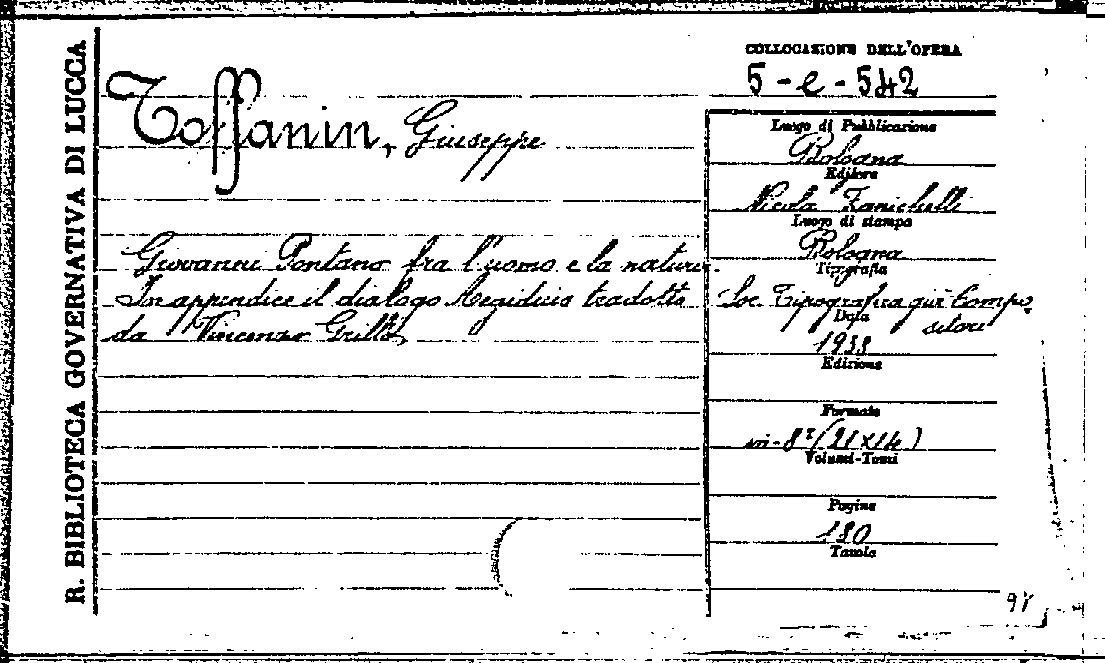 R. BIBLIOTECA GOVERNATIVA DI LUCCA
Toffanin, Giuseppe
Giovanni Pontano fra l'uomo e la natura.
In appendice il dialogo Aegidius tradotto
da Vincenzo Grillo
COLLOCAZIONE DELL'OPERA
5-e-542
Luogo di Pubblicazione
Bologna
Editore
Nicola Zanichelli
Luogo di stampa
Bologna
Tipografia
Soc. Tipografica già Compo
sitori
Data
1938
Edizione
Formato
in-8° (21x14)
Volumi-Tomi
Pagine
150
Tavole